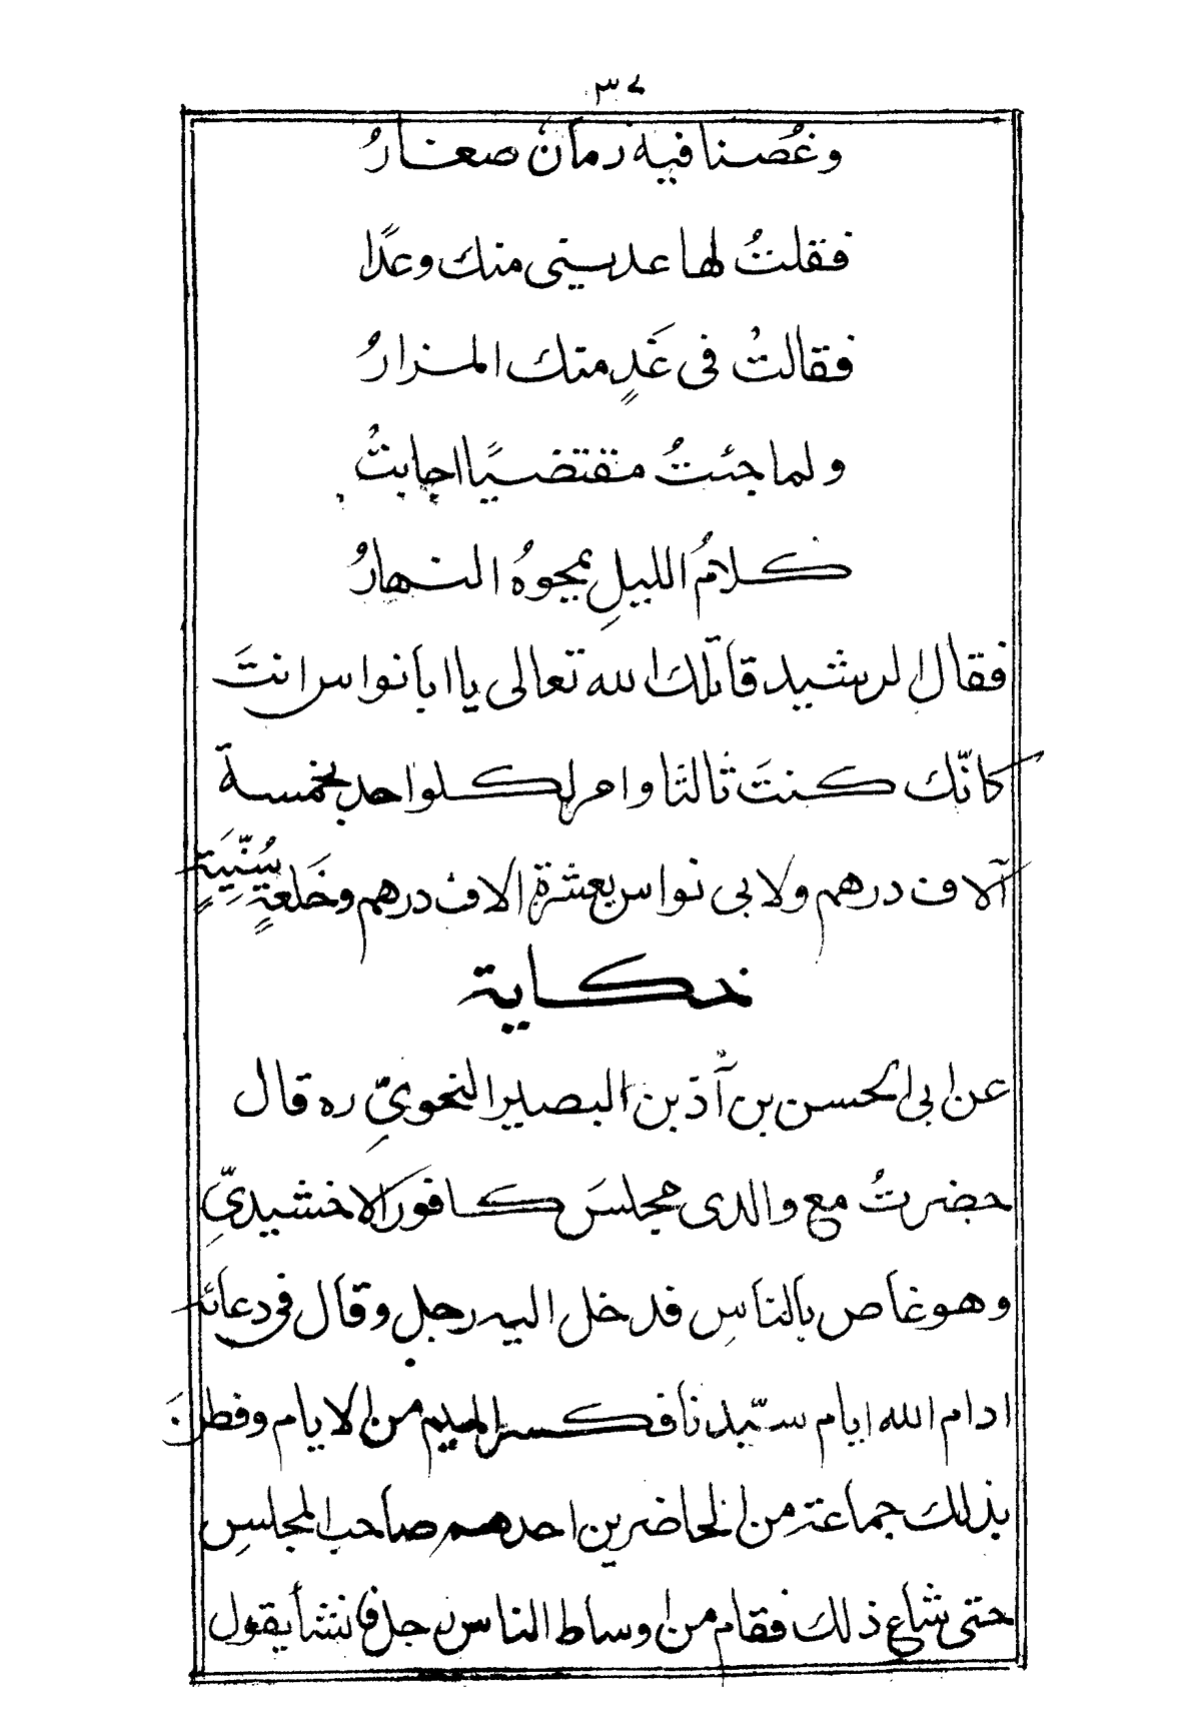 ٣٧
وغُصنا فيه رمان صغارُ
فقلتُ لها عديني منك وعدًا
فقالتْ فى غَدٍ منك المزارُ
ولما جئتُ مقتضيًا اجابتْ
كلامُ الليلِ يمحوهُ النهارُ
فقال الرشيد قاتلك الله تعالى يا ابا نواس انتَ
كانّك كنتَ ثالثنا وامر لكلواحد بخمسة
آلاف درهم ولابى نواس بعشرة الاف درهم وخَلعةٍ سُنّيَةٍ
حكاية
عن ابى الحسن بن آدّ بن البصير النحوىّ ره قال
حضرتُ مع والدى مجلسَ كافور الاخشيدىِّ
وهو غاص بالناسِ فدخل اليه رجل وقال فى دعائه
ادام الله ايام سيّدنا فكسر الميم من الايام وفطنَ
بذلك جماعة من الحاضرين احدهم صاحب المجلسِ
حتى شاع ذلك فقام من اوساط الناس رجل فانشأ يقول